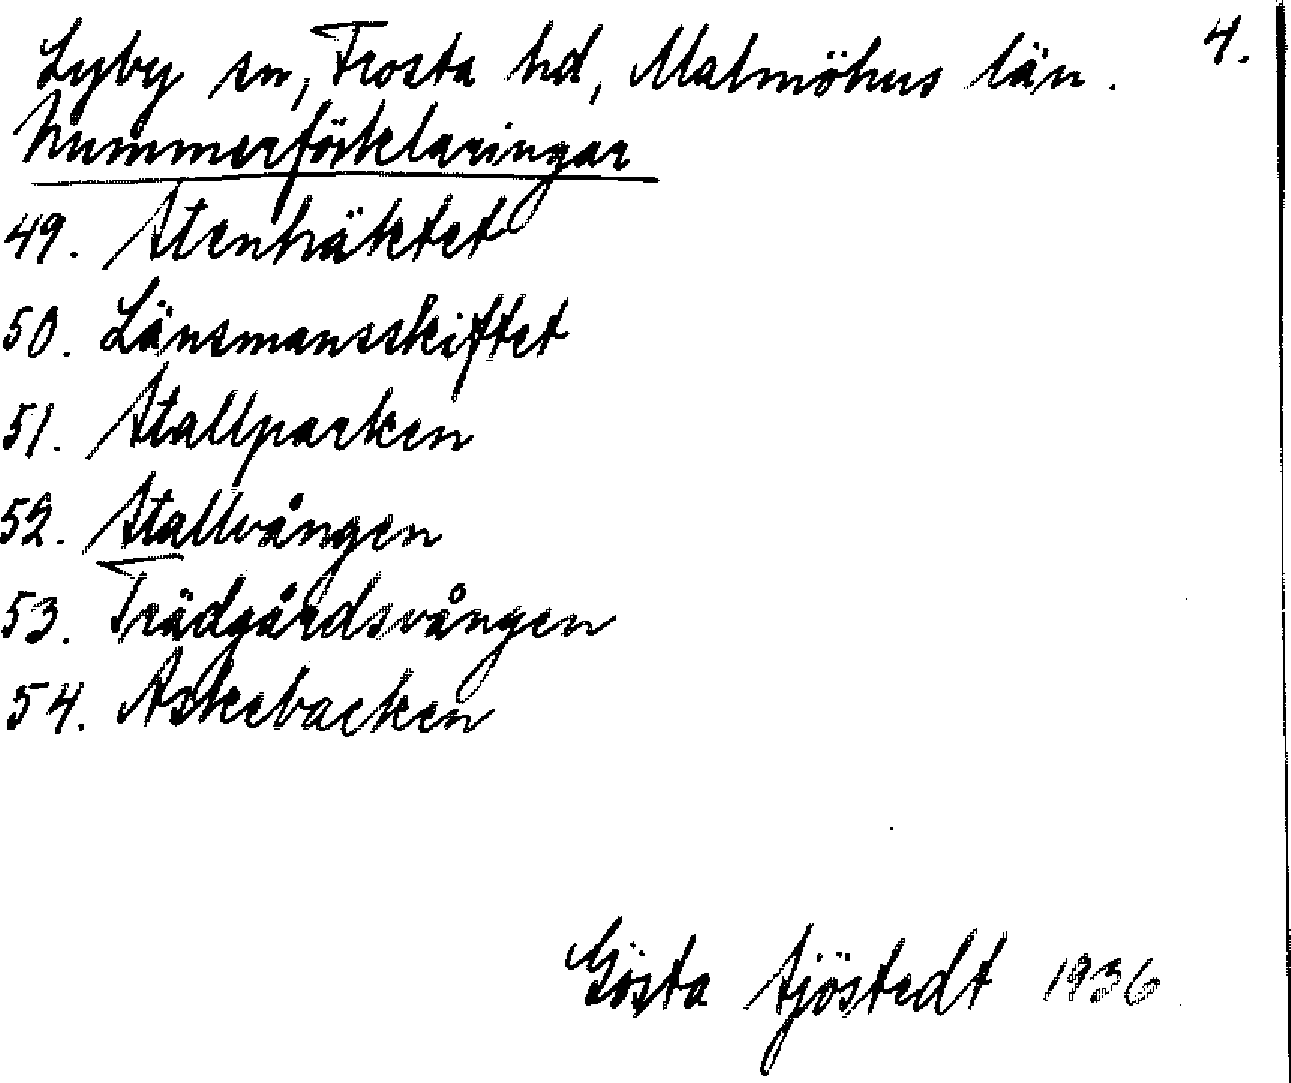 Lyby sn, Frosta hd, Malmöhus län. 4.
Nummerförklaringar
49. Stenhäktet
50. Länsmansskiftet
51. Stallparken
52. Stallvången
53. Trädgårdsvången
54. Askebacken
Gösta Sjöstedt 1936